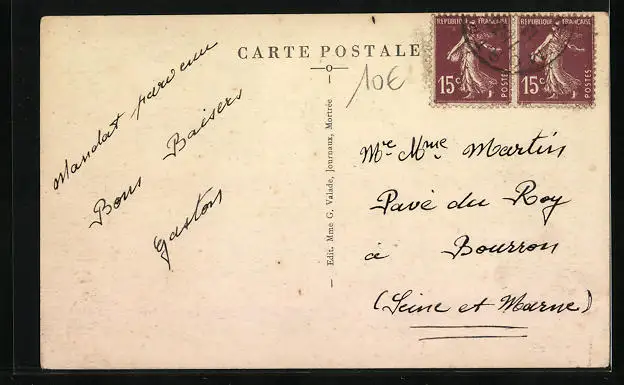 CARTE POSTALE
REPUBLIQUE FRANÇAISE
15c
POSTES
REPUBLIQUE FRANÇAISE
15c
POSTES
10€
Mandat parvenu
Bons Baisers
Gaston
Edit. Mme G. Valade, Journaux, Mortrée
Mr Mme Martin
Pavé du Roy
à Bourron
(Seine et Marne)